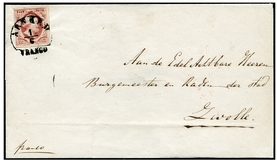 FRANCO
Aan de Edel Achtbare Heeren
Burgemeester en Raden der Stad
Zwolle.
franco